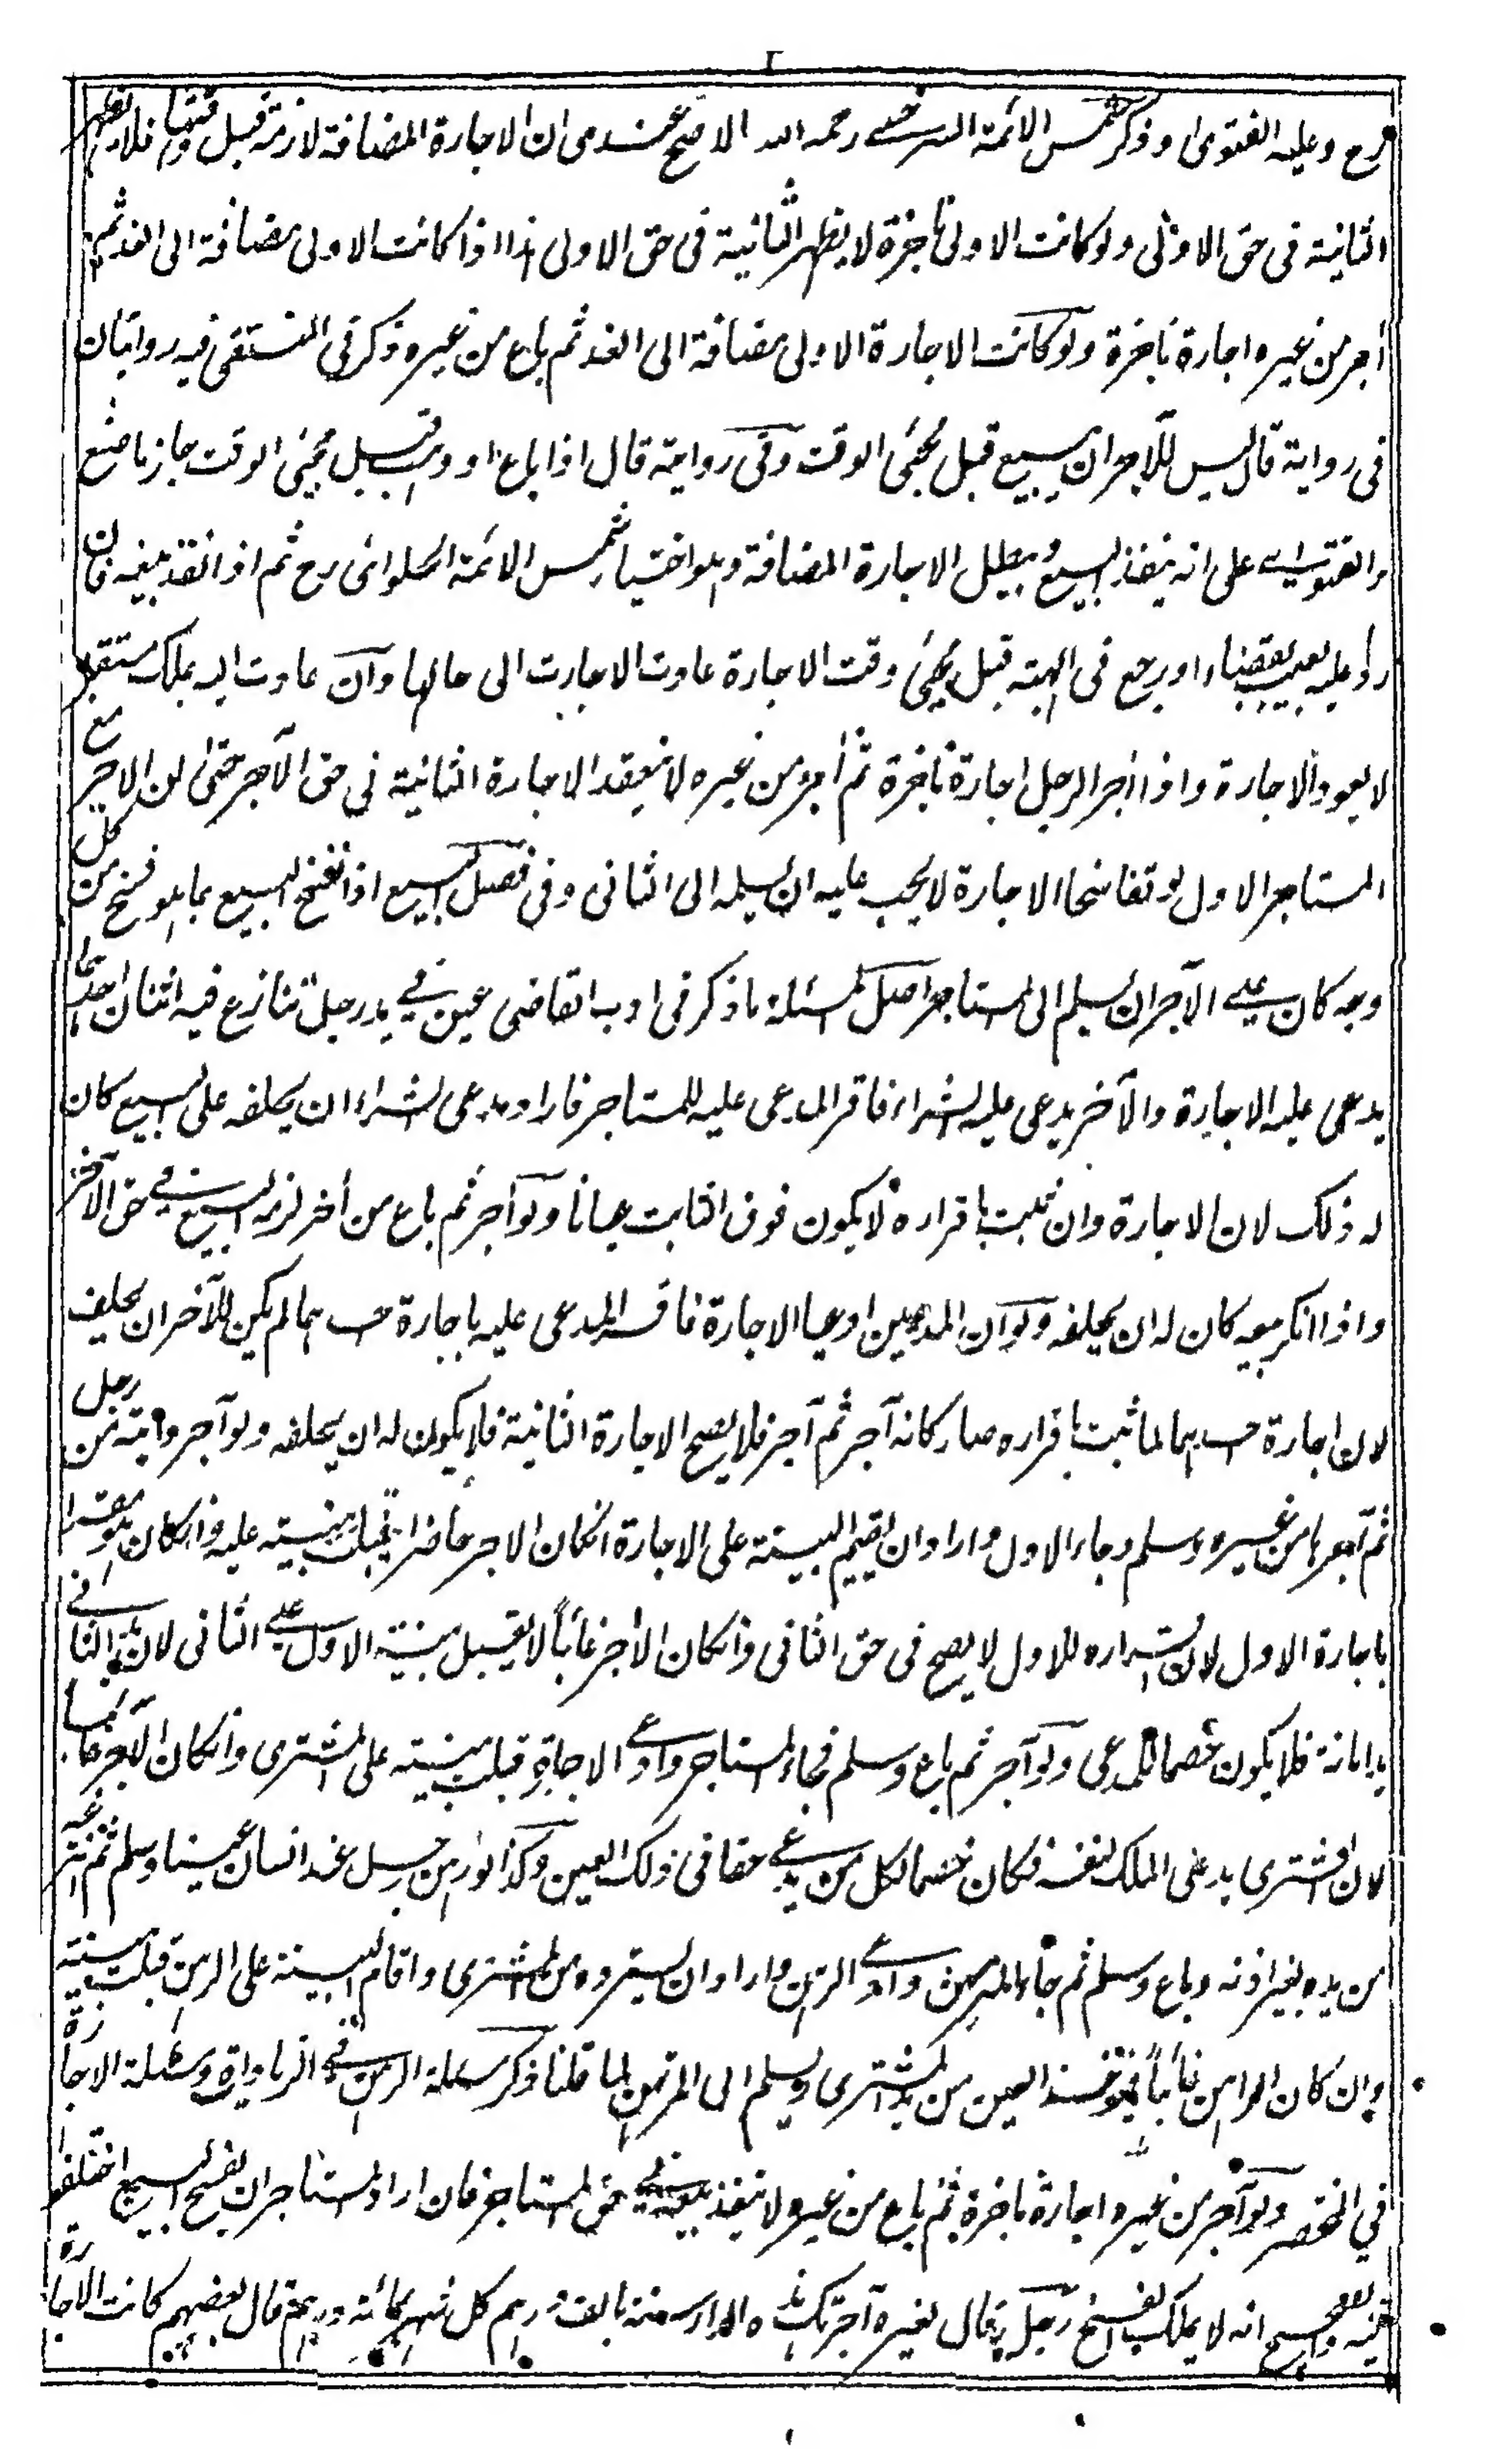 ٢
رح وعليه الفتوى وذكر شمس الائمة السرخسي رحمه الله الاصح عندى ان الاجارة المضافة لازمة قبل وقتها فلا تظهر
الثانية فى حق الاولى ولو كانت الاولى ناجزة لا يظهر الثانية فى حق الاولى هذا اذا كانت الاولى مضافة الى الغد ثم
أجر من غيره اجارة ناجزة ولو كانت الاجارة الاولى مضافة الى الغد ثم باع من غيره ذكر فى المنتقى فيه روايتان
فى رواية قال ليس للآجر ان يبيع قبل مجئ الوقت وفى رواية قال اذا باع او وهب قبل مجئ الوقت جاز ما صنع
والفتوى على انه ينفذ البيع ويبطل الاجارة المضافة وهو اختيار شمس الائمة الحلوائى رح ثم اذا نفذ بيعه فان
رد عليه بعيب بقضاء او رجع فى الهبة قبل مجئ وقت الاجارة عادت الاجارة الى حالها وان عادت اليه بملك مستقبل
لا يعود الاجارة واذا آجر الرجل اجارة ناجزة ثم أجر من غيره لا ينعقد الاجارة الثانية فى حق الآجر حتى ان الآجر مع
المستاجر الاول لو تفاسخا الاجارة لا يجب عليه ان يسلمه الى الثانى وفى فصل البيع اذا انفسخ البيع بما هو فسخ من كل
وجه كان على الآجر ان يسلم الى المستاجر اصل المسئلة ما ذكر فى ادب القاضى عين في يد رجل تنازع فيه اثنان احدهما
يدعى عليه الاجارة والآخر يدعى عليه الشراء فاقر المدعى عليه للمستاجر فاراد مدعى الشراء ان يحلفه على البيع كان
له ذلك لان الاجارة وان ثبت باقراره لا يكون فوق الثابت عيانا ولو آجر ثم باع من أخر لزمه البيع في حق الآخر
واذا انكر بيعه كان له ان يحلفه ولو ان المدعيين ادعيا الاجارة فاقر المدعى عليه باجارة احدهما لم يكن للآخر ان يحلف
لان اجارة احدهما لما ثبت باقراره صار كانه آجر ثم آجر فلا يصح الاجارة الثانية فلا يكون له ان يحلفه ولو آجر دابته من رجل
ثم آجرها من غيره وسلم وجاء الاول واراد ان يقيم البينة على الاجارة انكان الاجر حاضرا يقبل بينته عليه وانكان هو مقرا
باجارة الاول لان اقراره للاول لا يصح فى حق الثانى وانكان الآجر غائبا لا يقبل بينة الاول على الثانى لان يد الثانى
يد امانة فلا يكون خصما للمدعى ولو آجر ثم باع وسلم فجاء المستاجر وادعى الاجارة قبلت بينته على المشترى وانكان الآجر غائبا
لان المشترى يدعى الملك لنفسه فكان خصما لكل من يدعى حقا فى ذلك العين وكذا لو رهن رجل عند انسان عينا وسلم ثم انتزعه
من يده بغير اذنه وباع وسلم ثم جاء المرتهن وادعى الرهن واراد ان يسترده من المشترى واقام البينة على الرهن قبلت بينته
وان كان الراهن غائبا فيوخذ العين من يد المشترى ويسلم الى المرتهن لما قلنا ذكر مسئلة الرهن في الزيادات ومسئلة الاجارة
في المختصر ولو آجر من غيره اجارة ناجزة ثم باع من غيره لا ينفذ بيعه في حق المستاجر فان اراد المستاجر ان يفسخ البيع اختلفوا
فيه والصحيح انه لا يملك الفسخ رجل قال لغيره آجرتك هذه الدار سنة بالف درهم كل شهر بمائة درهم قال بعضهم كانت الاجارة